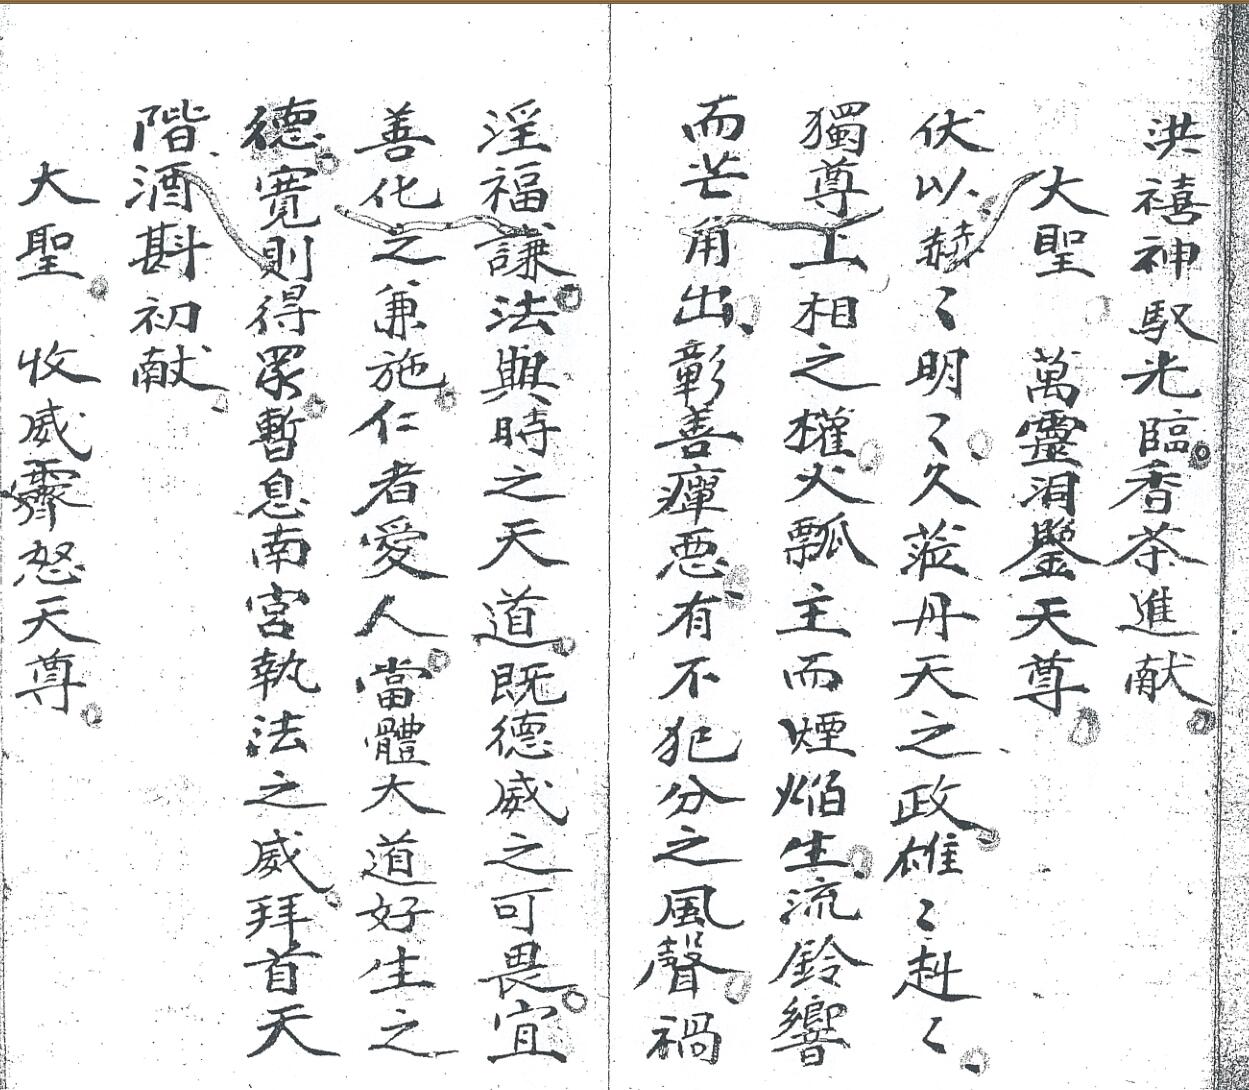 洪禧神馭光臨香茶進献
大聖　萬靈洞鑒天尊
伏以赫〻明〻久蒞丹天之政雄〻赳〻
獨尊上相之權火瓢主而煙焔生流鈴響
而芒角出彰善癉悪有不犯分之風聲禍
淫福謙法與時之天道既德威之可畏宜
善化之兼施仁者愛人當體大道好生之
德寬則得眾暫息南宮執法之威拜首天
階酒斟初献
大聖　收威霽怒天尊